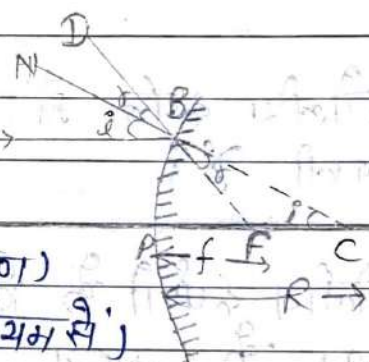 D
N
r
B
i
r
i
P f F C
R
यम से,